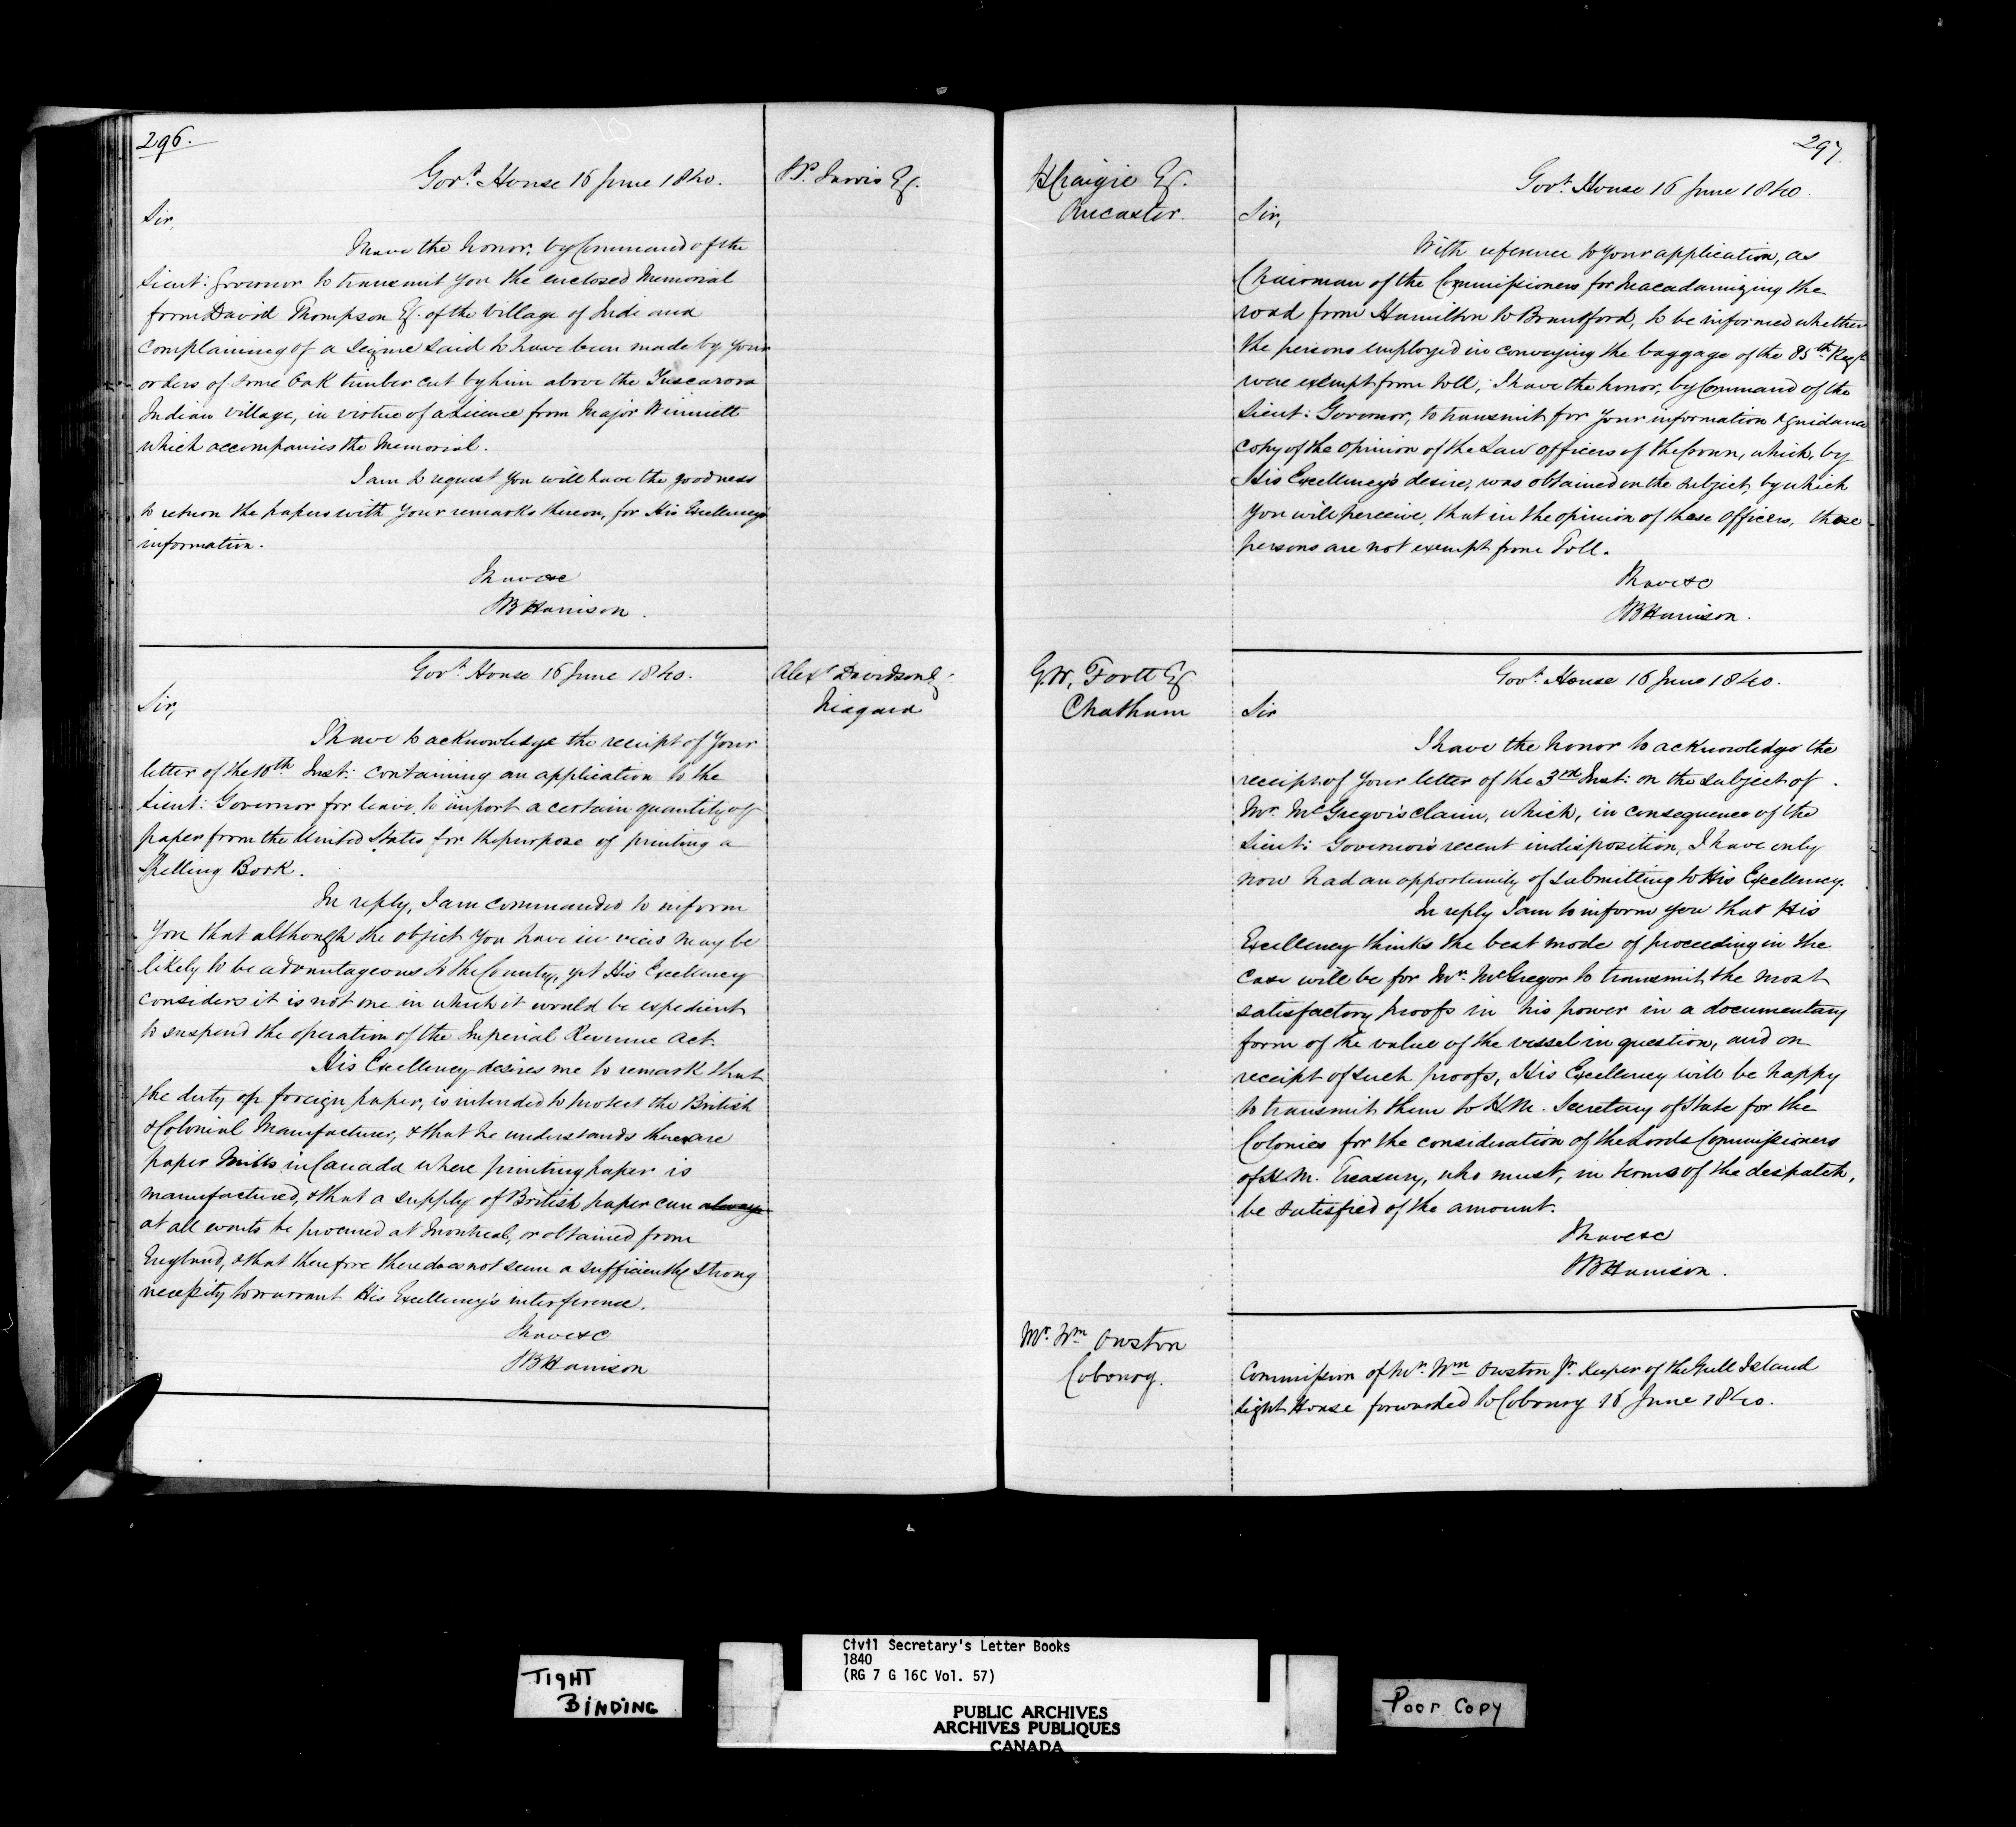 296.
Govt. House 16 June 1840.
S.P. Jarvis Esq.
Sir,
I have the honor, by Command of the
Lieut: Governor to transmit you the enclosed Memorial
from David Thompson Esq. of the Village of Indiana
Complaining of a seizure said to have been made by your
orders of some Oak timber cut by him above the Tuscarora
Indian Village, in virtue of a Licence from Major Winniett
which accompanies the Memorial.
I am to request you will have the goodness
to return the papers with your remarks thereon, for His Excellency's
information.
I have &c
SB Harrison.
Govt. House 16 June 1840.
Alexr Davidson Esq.
Niagara
Sir,
I have to acknowledge the receipt of your
letter of the 10th Inst: containing an application to the
Lieut: Governor for leave to import a certain quantity of
paper from the United States for the purpose of printing a
Spelling Book.
In reply, I am commanded to inform
you that although the object you have in view may be
likely to be advantageous to the Country, yet His Excellency
considers it is not one in which it would be expedient
to suspend the operation of the Imperial Revenue Act.
His Excellency desires me to remark that
the duty on foreign paper, is intended to protect the British
& Colonial Manufacturer, & that he understands there are
paper Mills in Canada where printing paper is
manufactured, & that a supply of British paper can always
at all events be procured at Montreal, or obtained from
England, & that therefore there does not seem a sufficiently strong
necessity to warrant His Excellency's interference.
I have &c
SB Harrison
297.
H Craigie Esq.
Ancaster.
Govt. House 16 June 1840.
Sir,
With reference to your application, as
Chairman of the Commissioners for Macadamizing the
road from Hamilton to Brantford, to be informed whether
the persons employed in conveying the baggage of the 85th Regt
were exempt from toll, I have the honor, by Command of the
Lieut: Governor, to transmit for your information & guidance
copy of the opinion of the Law officers of the Crown, which, by
His Excellency's desire, was obtained on the subject, by which
you will perceive, that in the opinion of these officers, these
persons are not exempt from Toll.
I have &c
SB Harrison.
G.W. Foott Esq.
Chatham
Govt. House 16 June 1840.
Sir
I have the honor to acknowledge the
receipt of your letter of the 3rd Inst: on the subject of
Mr. McGregor's claim, which, in consequence of the
Lieut: Governor's recent indisposition, I have only
now had an opportunity of submitting to His Excellency.
In reply I am to inform you that His
Excellency thinks the best mode of proceeding in the
case will be for Mr. McGregor to transmit the most
satisfactory proofs in his power in a documentary
form of the value of the vessel in question, and on
receipt of such proofs, His Excellency will be happy
to transmit them to H.M. Secretary of State for the
Colonies for the consideration of the Lords Commissioners
of H.M. Treasury, who must, in terms of the despatch,
be satisfied of the amount.
I have &c
SB Harrison.
Mr. Wm Owston
Cobourg.
Commission of Mr. Wm Owston Jr. Keeper of the Gull Island
Light House forwarded to Cobourg 16 June 1840.
TIGHT
BINDING
Civil Secretary's Letter Books
1840
(RG 7 G 16C Vol. 57)
PUBLIC ARCHIVES
ARCHIVES PUBLIQUES
CANADA
Poor Copy